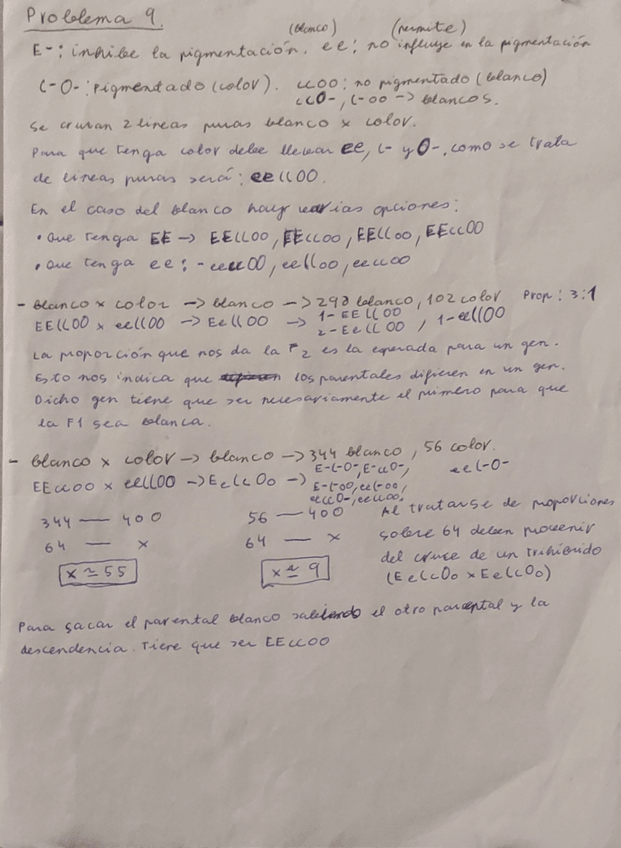 Problema 9.
(blanco) (permite)
E-: inhibe la pigmentación. ee: no influye en la pigmentación
C-O-: pigmentado (color). ccOO: no pigmentado (blanco)
ccO-, C-oo -> blancos.
Se cruzan 2 líneas puras blanco x color.
Para que tenga color debe llevar ee, C- y O-, como se trata
de líneas puras será: eeCCOO.
En el caso del blanco hay varias opciones:
• Que tenga EE -> EECCOO, EEccoo, EECCoo, EEccOO
• Que tenga ee: - eeccOO, eeCCoo, eeccoo
- blanco x color -> blanco -> 298 blanco, 102 color Prop: 3:1
EECCOO x eeCCOO -> EeCCOO -> 1-EECCOO
2-EeCCOO, 1-eeCCOO
La proporción que nos da la F2 es la esperada para un gen.
Esto nos indica que los parentales difieren en un gen.
Dicho gen tiene que ser necesariamente el primero para que
la F1 sea blanca.
- blanco x color -> blanco -> 344 blanco, 56 color.
EEccoo x eeCCOO -> EeCcOo -> E-C-O-, E-ccO-, eeC-O-
E-C-oo, eeC-oo,
eeccO-, eeccoo,
344 — 400 56 — 400 Al tratarse de proporciones
64 — x 64 — x sobre 64 deben provenir
x ≃ 55 x ≃ 9 del cruce de un trihíbrido
(EeCcOo x EeCcOo)
Para sacar el parental blanco sabiendo el otro parental y la
descendencia. Tiene que ser EEccoo